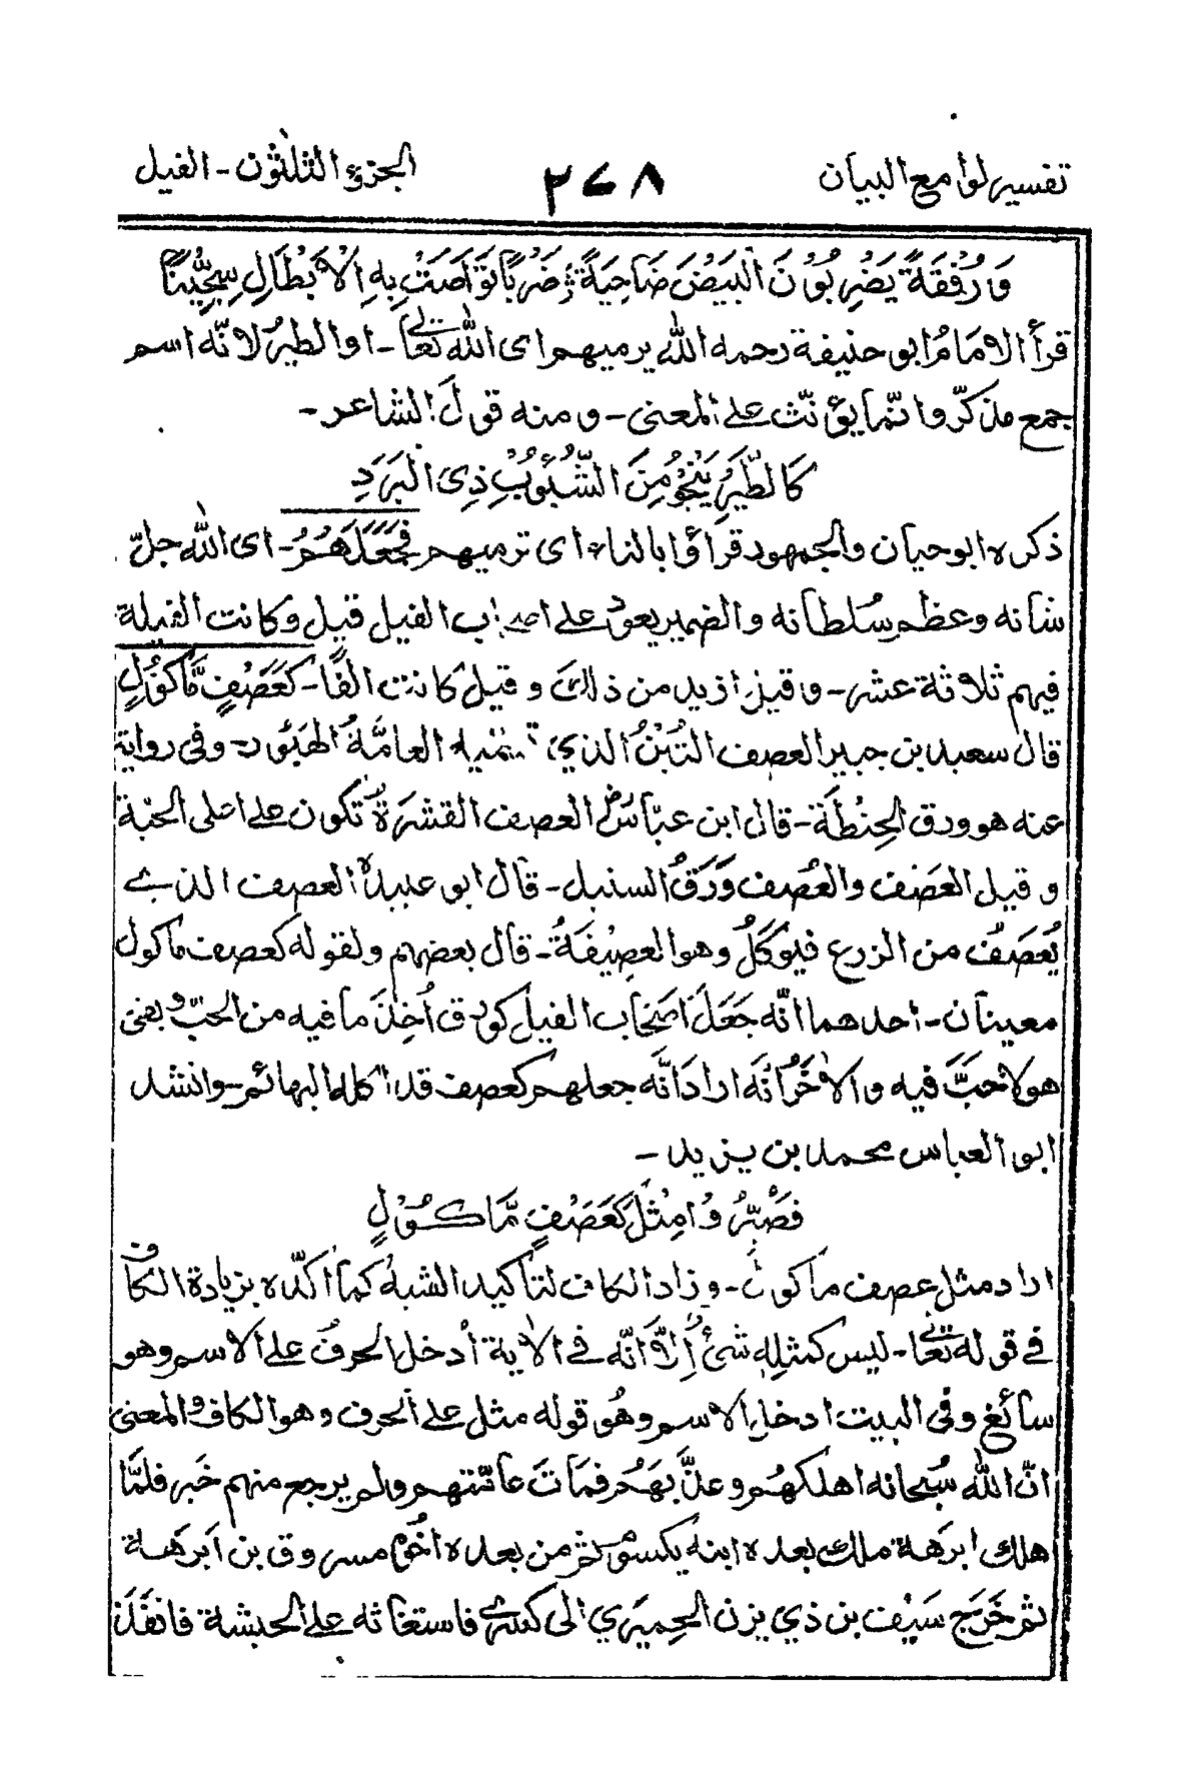 تفسير لوامع البيان ٢٧٨ الجزؤ الثلثون - الفيل
وَرُفْقَةً يَضْرِبُوْنَ الْبَيْضَ ضَاحِيَةً ؛ ضَرْبًا تَوَاصَتْ بِهِ الْاَبْطَالِ سِجِّيْنًا
قرأ الامامُ ابو حنيفة رحمه الله يرميهم اى الله تعالى - او الطيرُ لانّه اسم
جمع مذكّر وانّما يؤنّث على المعنى - ومنه قول الشاعر -
كَالطَّيْرِ يَنْجُوْ مِنَ الشُّؤْبُوْبِ ذِى الْبَرَدِ
ذكره ابو حيان والجمهور قرأؤا بالتاء اى ترميهم فَجَعَلَهُمْ - اى الله جلّ
شانه وعظم سُلطانه والضمير يعود على اصحاب الفيل قيل وكانت الفيلة
فيهم ثلاثة عشر - وقيل ازيد من ذلك وقيل كانت الفًا - كَعَصْفٍ مَّاكُوْلٍ
قال سعيد بن جبير العصف التِّبْنُ الذي تسميه العامَّةُ الهَبُّور - وفى رواية
عنه هو ورق الحِنْطَة - قال ابن عبّاس العصف القشرةُ تكون على اعلى الحبّة
وقيل العَصْف والعُصف وَرَقُ السنبل - قال ابو عبيدة العصف الذى
يُعصَفُ من الزرع فيؤكَلُ وهو العصِيْفَةُ - قال بعضهم ولقوله كعصف ماكول
معينان - احدهما انّه جَعَلَ اصْحَاب الفيل كورق اُخِذَ ما فيه من الحبّ وبقى
هو لا حَبَّ فيه والاٰخَرُ انَّه ارادَ انَّه جعلهم كعصف قد اكله البهائم - وانشد
ابو العباس محمد بن يزيد -
فَصُيِّرُوْا مِثْلَ كَعَصْفٍ مَّاكُوْلٍ
اراد مثل عصف ماكول - وزاد الكاف لتاكيد الشبه كما اكّده بزيادة الكاف
في قوله تعالى - ليس كمثلِهٖ شئٌ اِلَّا انَّه في الاٰية أدخل الحرفُ على الاسم وهو
سائغ وفى البيت ادخل الاسم وهُو قوله مثل على الحرف وهو الكاف والمعنى
انّ الله سُبحانه اهلكهُم وعذَّبَهُم فمَاتَ عامّتهم ولم يرجع منهم خَبر فلمَّا
هلك ابرَهة ملك بعده ابنه يكسُوم ثمّ من بعده اخُوْه مسروق بن اَبرَهَة
ثم خَرَجَ سَيْف بن ذي يزن الحِميَرِي الى كسرى فاستغاثه على الحبشة فانفَذَ